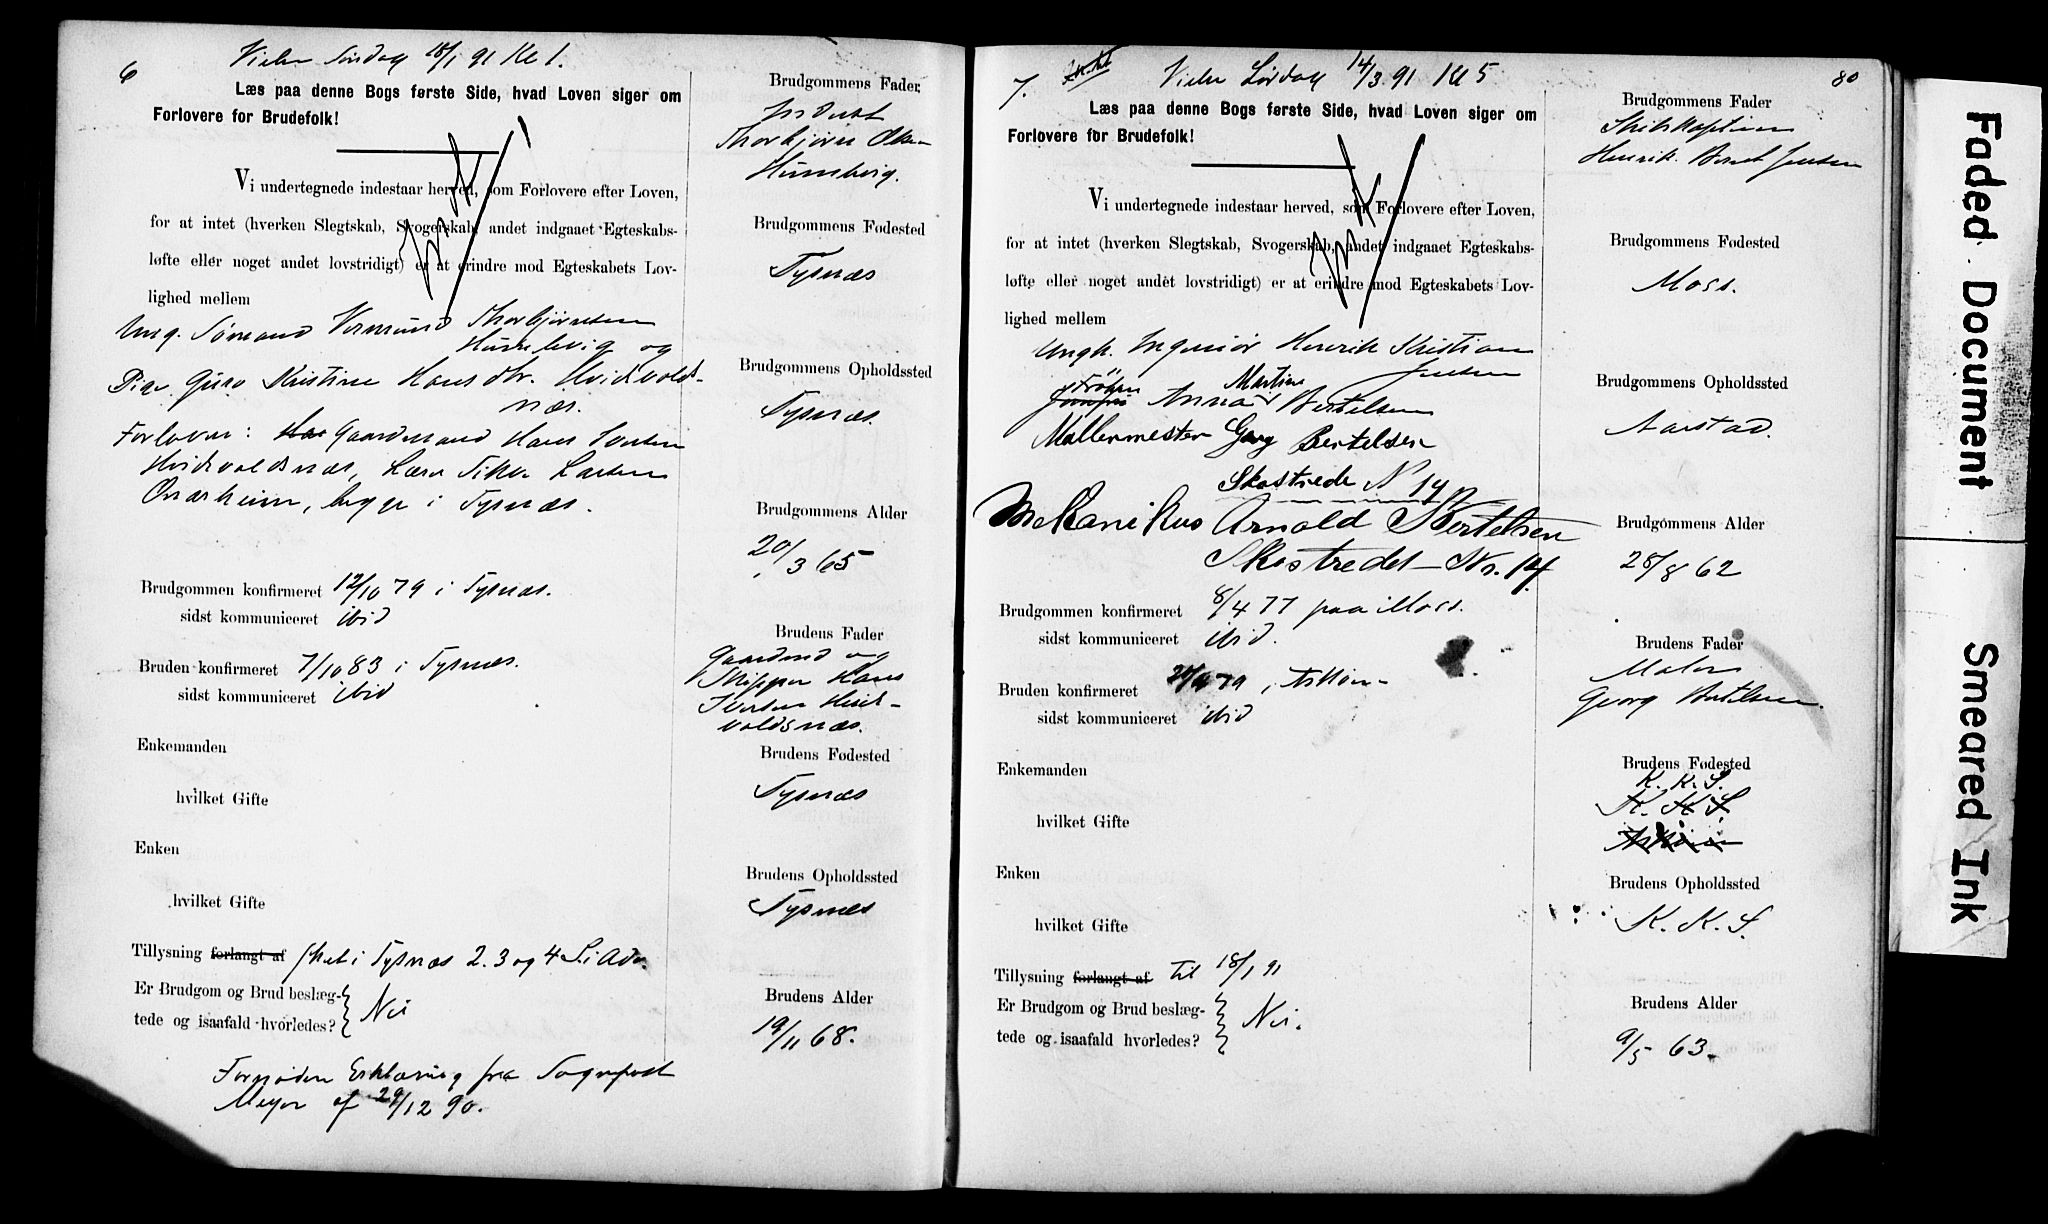 6
Vies Søndag 18/1 91 Kl 1.
Læs paa denne Bogs første Side, hvad Loven siger om
Forlovere for Brudefolk!
Vi undertegnede indestaar herved, som Forlovere efter Loven,
for at intet (hverken Slegtskab, Svogerskab, andet indgaaet Egteskabs-
løfte eller noget andet lovstridigt) er at erindre mod Egteskabets Lov-
lighed mellem
Ung. Sømand Vermund Thorbjørnsen
Humlevig og
Pige Guro Kristine Hansdtr. Hvidvolds-
næs.
Forlover: Gaardmand Hans Iversen
Hvidvoldsnæs, Lars Larsen
Onarheim, begge i Tysnæs.
Brudgommen konfirmeret 12/10 79 i Tysnæs.
sidst kommuniceret ibid
Bruden konfirmeret 7/10 83 i Tysnæs.
sidst kommuniceret ibid
Enkemanden
hvilket Gifte
Enken
hvilket Gifte
Tillysning forlangt af skeet i Tysnæs 2. 3 og 4 S. i Adv.
Er Brudgom og Brud beslæg-
tede og isaafald hvorledes? Nei
Fornøden Erklæring fra Sognepræst
Meyer af 29/12 90.
Brudgommens Fader
Inderst
Thorbjørn Olsen
Humlevig.
Brudgommens Fødested
Tysnæs
Brudgommens Opholdssted
Tysnæs.
Brudgommens Alder
20/3 65
Brudens Fader
Gaardmd og
Skipper Hans
Iversen Hvid-
voldsnæs.
Brudens Fødested
Tysnæs
Brudens Opholdssted
Tysnæs
Brudens Alder
19/11 68.
7.
Vies Lørdag 14/3 91 Kl 5
80
Læs paa denne Bogs første Side, hvad Loven siger om
Forlovere for Brudefolk!
Vi undertegnede indestaar herved, som Forlovere efter Loven,
for at intet (hverken Slegtskab, Svogerskab, andet indgaaet Egteskabs-
løfte eller noget andet lovstridigt) er at erindre mod Egteskabets Lov-
lighed mellem
Ungk. Ingeniør Henrik Kristian
Jensen
Frøken Martine
Jomfru Anna Bertelsen
Mallermester Georg Bertelsen
Skostrede N 14
Mekanikus Arnold Bertelsen
Skostredet Nr. 14.
Brudgommen konfirmeret 8/4 77 paa Moss.
sidst kommuniceret ibid.
Bruden konfirmeret 79 i Askøen
sidst kommuniceret ibid
Enkemanden
hvilket Gifte
Enken
hvilket Gifte
Tillysning forlangt af til 18/1 91
Er Brudgom og Brud beslæg-
tede og isaafald hvorledes? Nei.
Brudgommens Fader
Skibskaptein
Henrik Bernt Jensen
Brudgommens Fødested
Moss.
Brudgommens Opholdssted
Aarstad.
Brudgommens Alder
28/8 62
Brudens Fader
Maler
Georg Bertelsen.
Brudens Fødested
K. K. S.
K. K. S.
Askøen
Brudens Opholdssted
K. K. S.
Brudens Alder
9/5 63.
Faded Document
Smeared Ink